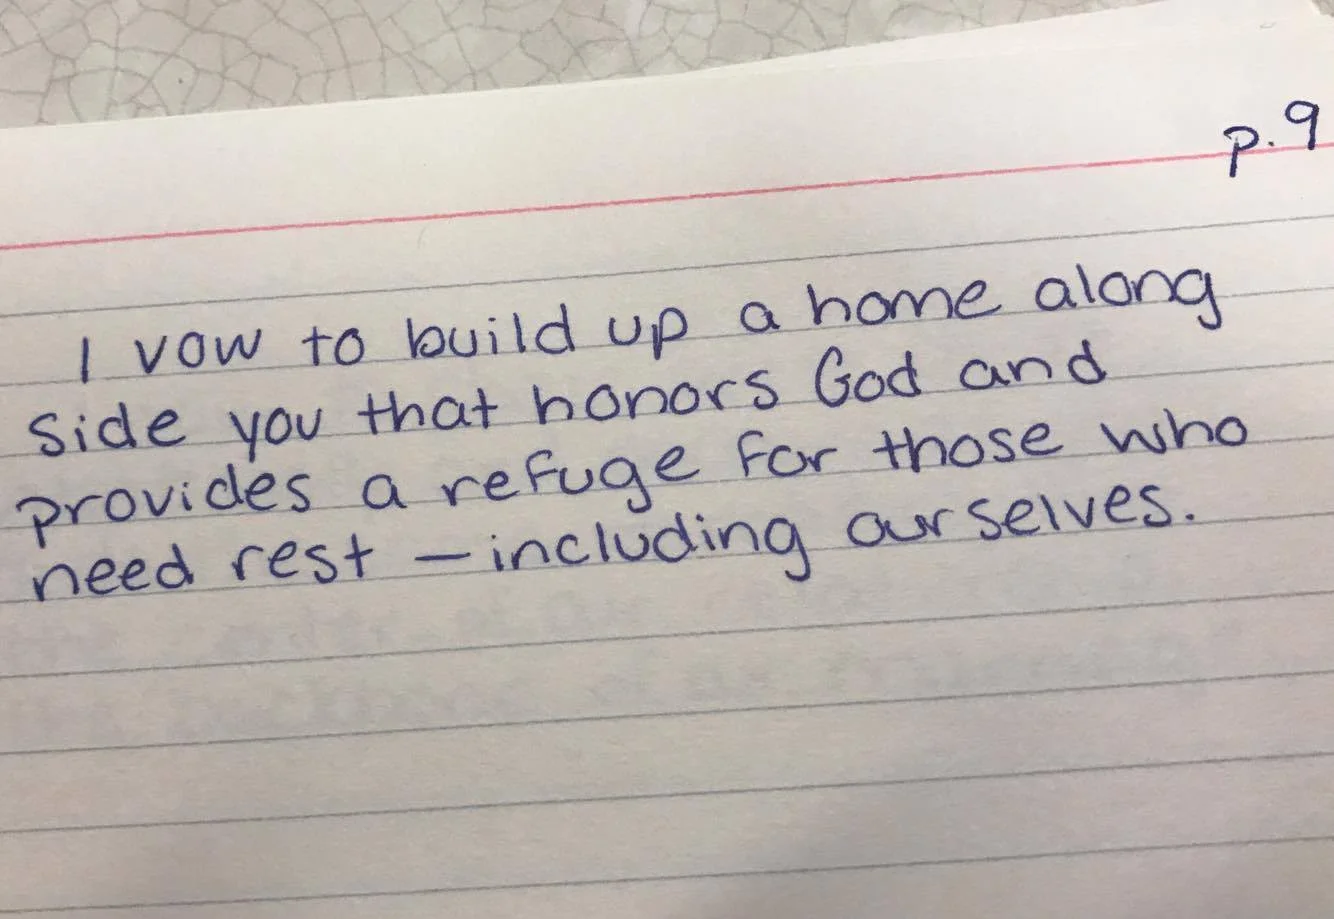 p.9
I vow to build up a home along
side you that honors God and
provides a refuge for those who
need rest – including ourselves.